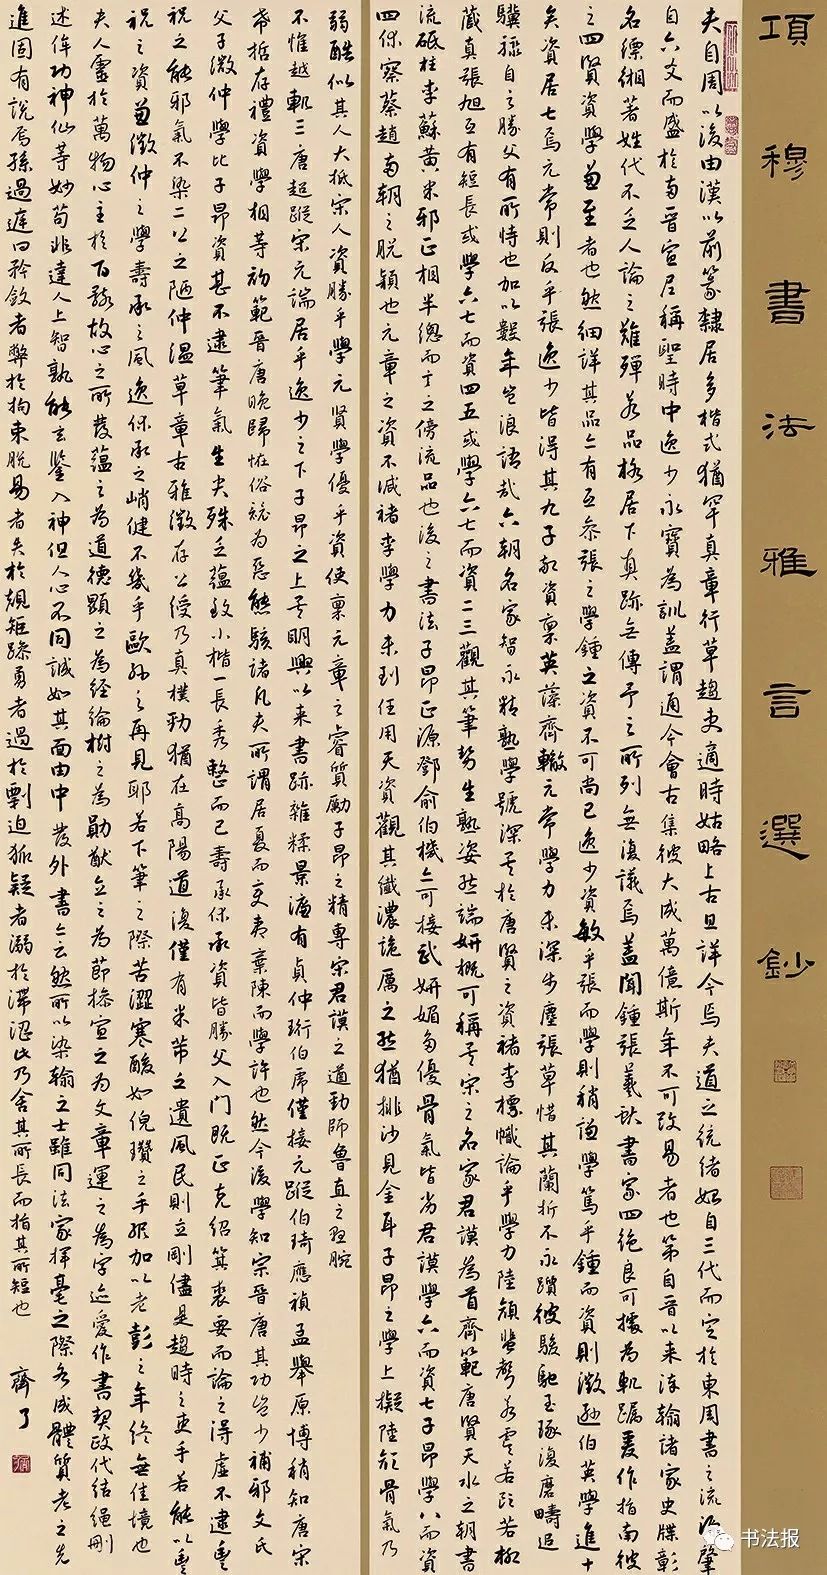 項穆書法雅言選鈔
夫自周以後由漢以前篆隸居多楷式猶罕真章行草趨吏適時姑略上古且詳今焉夫道之統緒始自三代而定於東周書之流派肇
自六爻而盛於南晉宣尼稱聖時中逸少永寶為訓蓋謂通今會古集彼大成萬億斯年不可改易者也第自晉以來染翰諸家史牒彰
名縹緗著姓代不乏人論之難殫若品格居下真跡無傳予之所列無復議焉蓋聞鍾張羲獻書家四絕良可據為軌躅爰作指南彼
之四賢資學兼至者也然細詳其品亦有互差張之學鍾之資不可尚已逸少資敏乎張而學則稍謙學篤乎鍾而資則微遜伯英學進十
矣資居七焉元常則反乎張逸少皆得其九子敬資稟英藻齊轍元常學力未深步塵張草惜其蘭折不永躓彼駿馳玉琢復磨疇追
驥騄自云勝父有所恃也加以數年豈浪語哉六朝名家智永精熟學號深矣於唐賢之資褚李標幟論乎學力陸顏蜚聲若虞若歐若柳
藏真張旭互有短長或學六七而資四五或學六七而資二三觀其筆勢生熟姿態端妍概可稱矣宋之名家君謨為首齊範唐賢天水之朝書
流砥柱李蘇黃米邪正相半總而言之傍流品也後之書法子昂正源鄧俞伯機亦可接武妍媚多優骨氣皆劣君謨學六而資七子昂學八而資
四休哉蔡趙兩朝之脫穎也元章之資不減褚李學力未到任用天資觀其纖濃詭厲之態猶排沙見金耳子昂之學上擬陸顏骨氣乃
弱酷似其人大抵宋人資勝乎學元賢學優乎資使稟元章之睿質勵子昂之精專宋君謨之遒勁師魯直之懸腕
不惟越軌三唐超蹤宋元端居乎逸少之下子昂之上矣明興以來書跡雜糅景濂有貞仲珩伯虎僅接元蹤伯琦應禎孟舉原博稍知唐宋
希哲存禮資學相等初範晉唐晚歸怪俗競為惡態駭諸凡夫所謂居夏而變夷棄陳而學許也然令後學知宗晉唐其功豈少補邪文氏
父子徵仲學比子昂資甚不逮筆氣生尖殊乏蘊致小楷一長秀整而已壽承休承資皆勝父入門既正克紹箕裘要而論之得虛不逮豐
祝之能邪氣不染二公之陋仲溫草章古雅微存公綬乃真樸勁猶在高陽道復僅有米芾之遺風民則立剛儘是趨時之吏手若能以豐
祝之資兼徵仲之學壽承之風逸休承之峭健不幾乎歐孫之再見耶若下筆之際苦澀寒酸如倪瓚之手縱加以老彭之年終無佳境也
夫人靈於萬物心主於百骸故心之所發蘊之為道德顯之為經綸樹之為勛猷立之為節操宣之為文章運之為字跡爰作書契政代結繩刪
述侔功神仙等妙苟非達人上智孰能玄鑒入神但人心不同誠如其面由中發外書亦云然所以染翰之士雖同法家揮毫之際各成體質考之先
進固有說焉孫過庭曰矜斂者弊於拘束脫易者失於規矩躁勇者過於剽迫狐疑者溺於滯澀此乃舍其所長而指其所短也
书法报